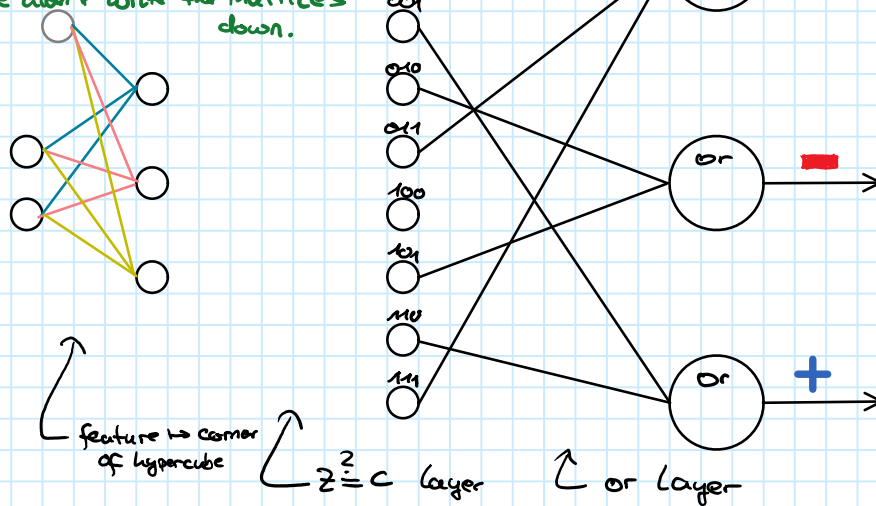 with the matrices
down.
001
010
011
100
101
110
111
or
or
feature ↦ corner
of hypercube
z ≟ c layer
or layer